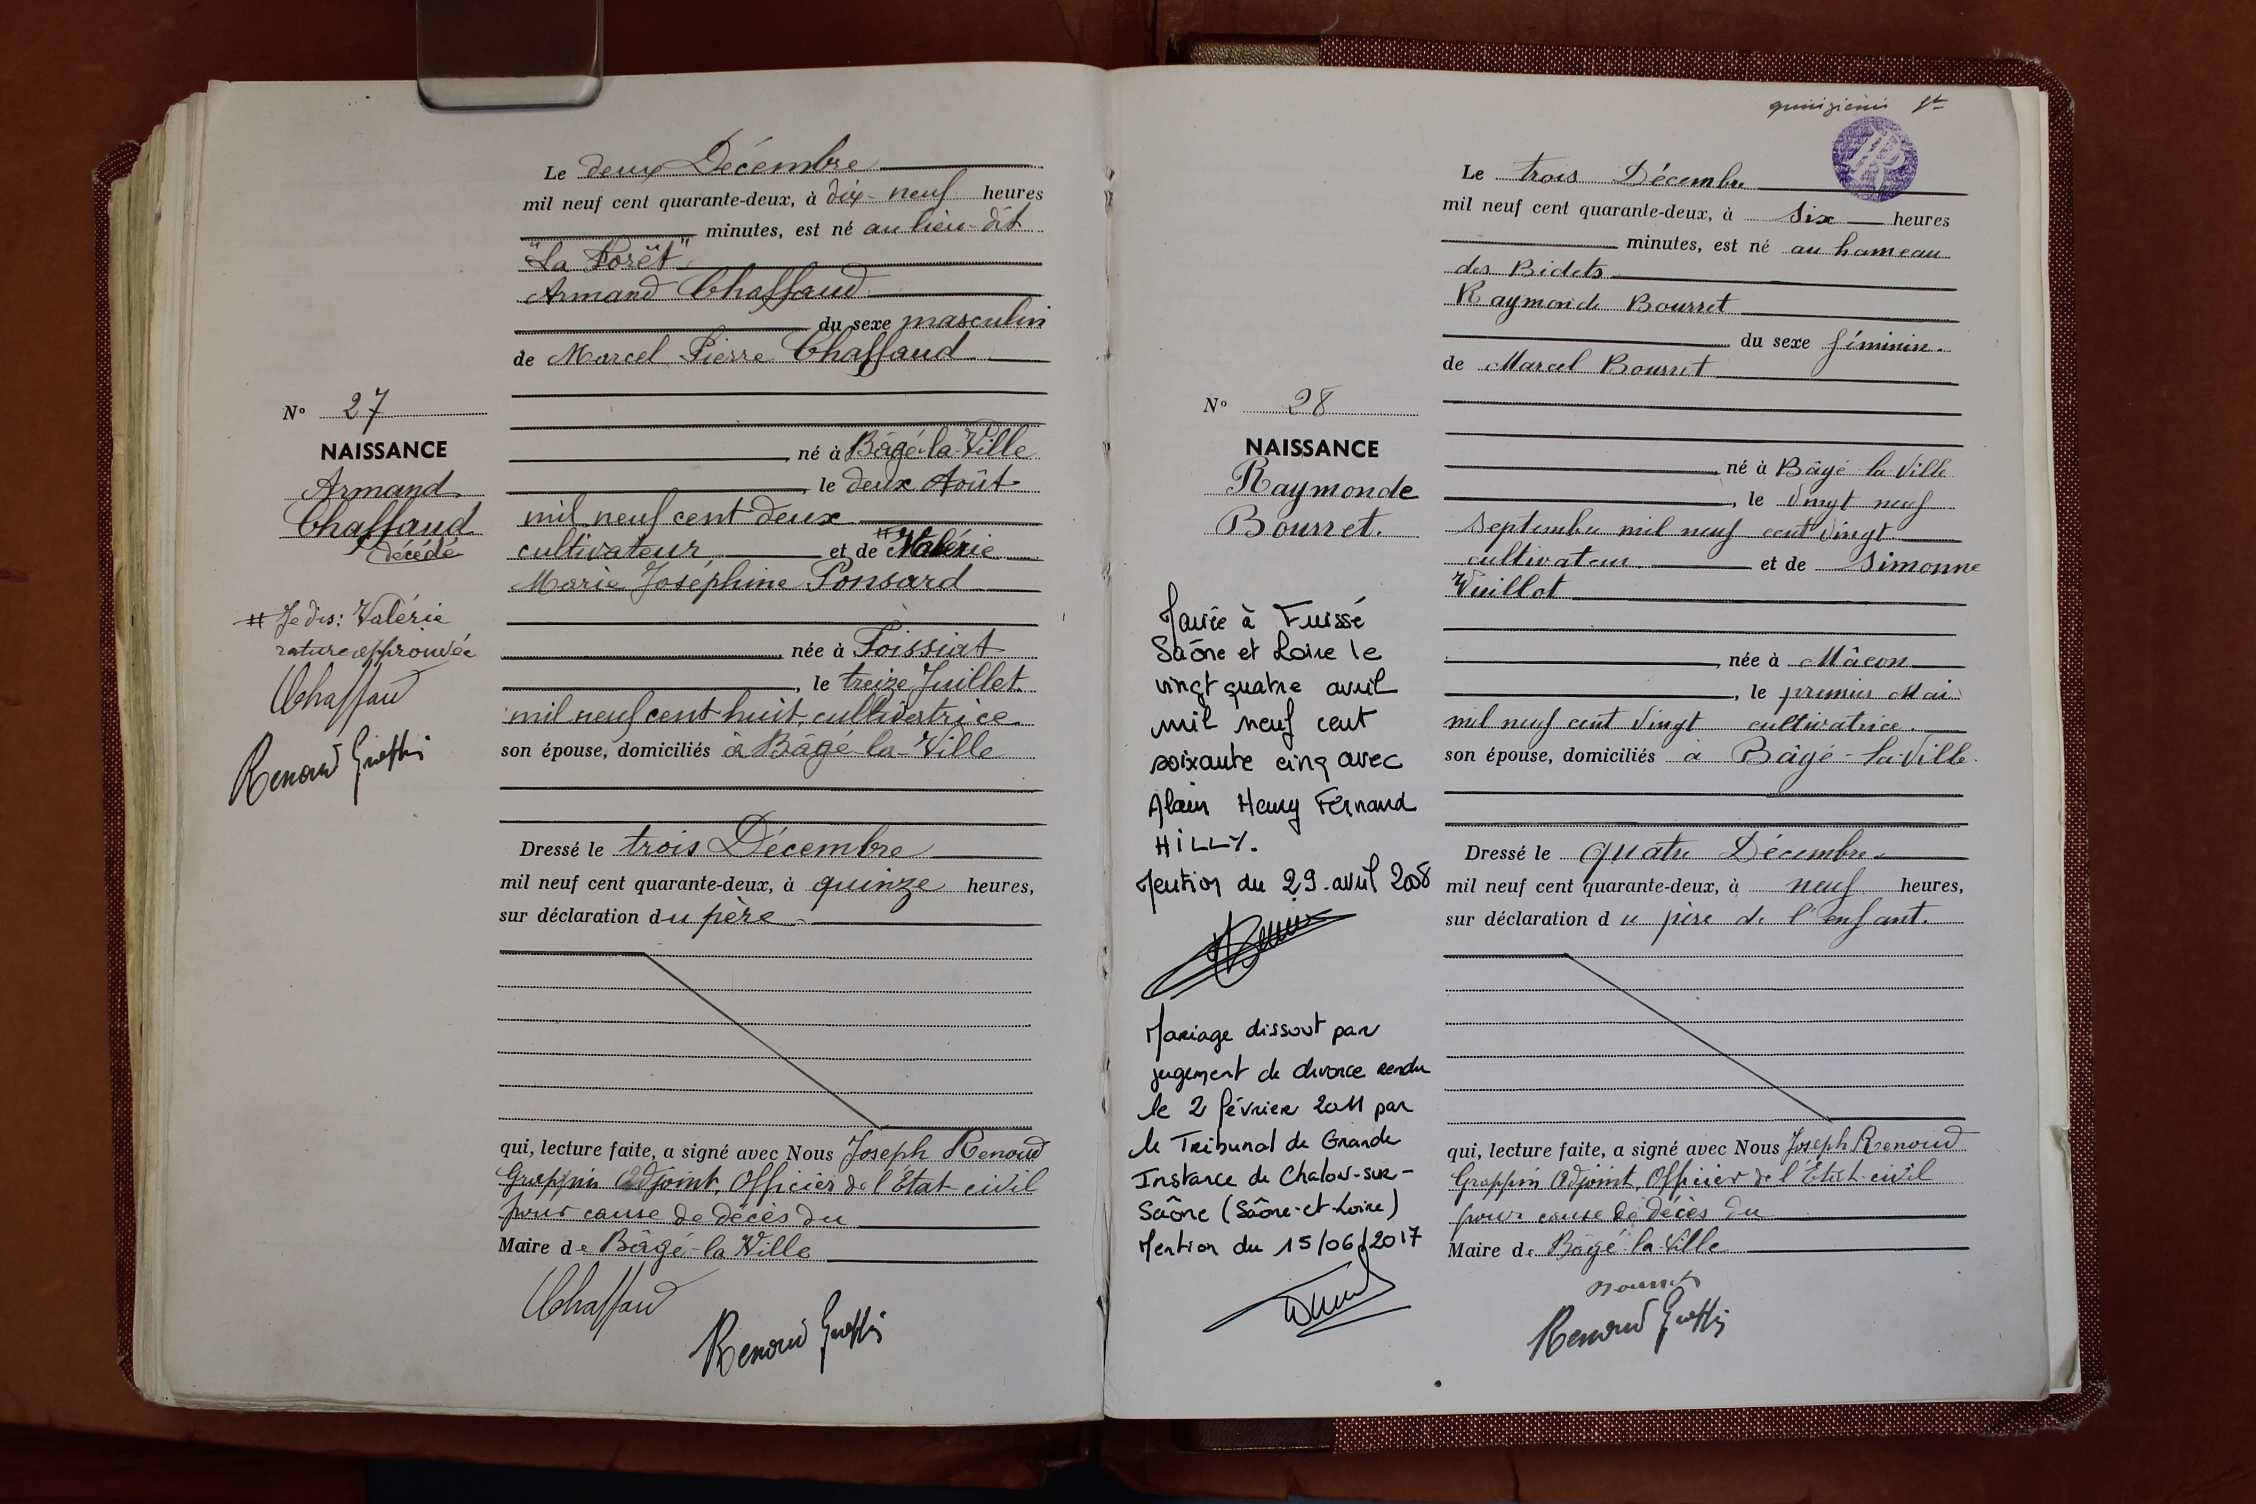 Le deux Décembre
mil neuf cent quarante-deux, à dix-neuf heures
minutes, est né au lieu-dit
"La Forêt"
Armand Chaffaud
du sexe masculin
de Marcel Pierre Chaffaud
né à Bâgé-la-Ville
, le deux Août
mil neuf cent deux
cultivateur et de # Valérie
Marie Joséphine Ponsard
née à Foissiat
, le treize Juillet
mil neuf cent huit, cultivatrice
son épouse, domiciliés à Bâgé-la-Ville
Dressé le trois Décembre
mil neuf cent quarante-deux, à quinze heures,
sur déclaration du père
qui, lecture faite, a signé avec Nous Joseph Renoud
Grappin Adjoint, Officier de l'État-civil
pour cause de décès du
Maire de Bâgé-la-Ville
Chaffaud
Renoud Grappin
No 27
NAISSANCE
Armand
Chaffaud
décédé
# Je dis: Valérie
rature approuvée
Chaffaud
Renoud Grappin
Le trois Décembre
mil neuf cent quarante-deux, à six heures
minutes, est né au hameau
des Bidets
Raymonde Bourret
du sexe féminin.
de Marcel Bourret
né à Bâgé la Ville
, le vingt neuf
septembre mil neuf cent vingt
cultivateur et de Simonne
Vuillot
née à Mâcon
, le premier Mai
mil neuf cent vingt cultivatrice.
son épouse, domiciliés à Bâgé-la-Ville.
Dressé le quatre Décembre
mil neuf cent quarante-deux, à neuf heures,
sur déclaration du père de l'enfant.
qui, lecture faite, a signé avec Nous Joseph Renoud
Grappin Adjoint, Officier de l'État-civil
pour cause de décès du
Maire de Bâgé-la-Ville
Bourret
Renoud Grappin
No 28
NAISSANCE
Raymonde
Bourret.
Mariée à Fuissé
Saône et Loire le
vingt quatre avril
mil neuf cent
soixante cinq avec
Alain Henry Fernand
HILLY.
Mention du 29 avril 2008
Mariage dissout par
jugement de divorce rendu
le 2 février 2011 par
le Tribunal de Grande
Instance de Chalon-sur-
Saône (Saône-et-Loire)
Mention du 15/06/2017